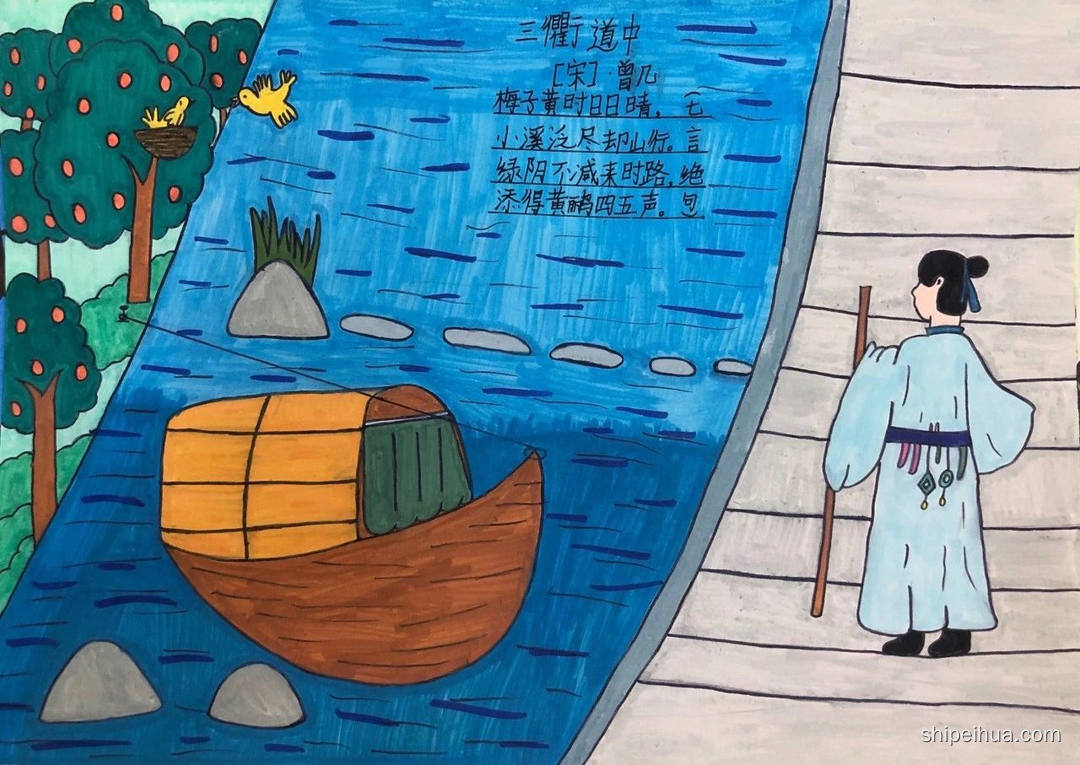 三衢道中
[宋]·曾几
梅子黄时日日晴,
小溪泛尽却山行。
绿阴不减来时路,
添得黄鹂四五声。
七言绝句
shipeihua.com